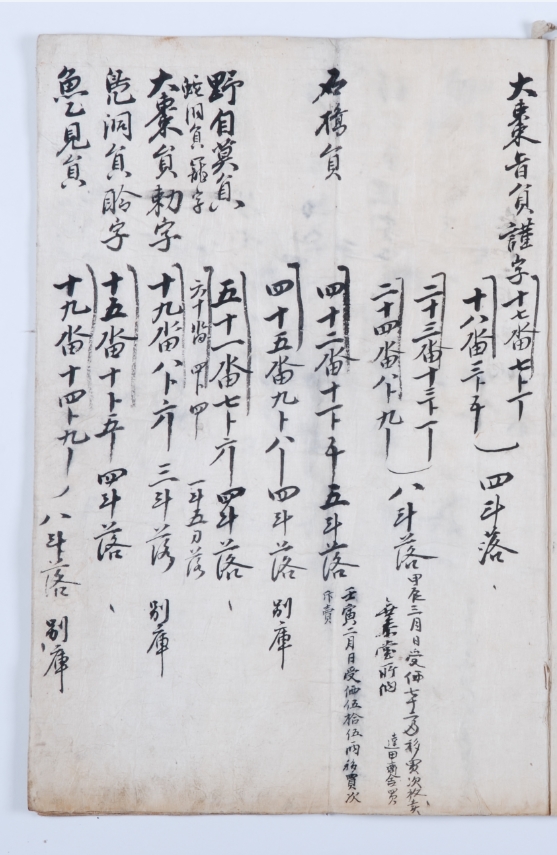 大棗旨員 謹字 十七畓 七卜一丨
十八畓 三卜五丨 四斗落
二十三畓 十三卜一丨
二十四畓 八卜九丨 八斗落 甲辰三月日受価七十
石橋員 四十二畓 十一卜五丨 五斗落 壬寅二月日受価伍拾伍兩移買次
四十五畓 九卜八丨 四斗落 別庫
野自莫員 五十一畓 七卜六丨 四斗落
蛇洞員 六十畓 四卜四 一斗五刀落
大棗員 勅字 十九畓 八卜六丨 三斗落 別庫
洞員 聆字 十五畓 十卜五丨 四斗落
魚乙見員 十九畓 十四卜九丨 八斗落 別庫